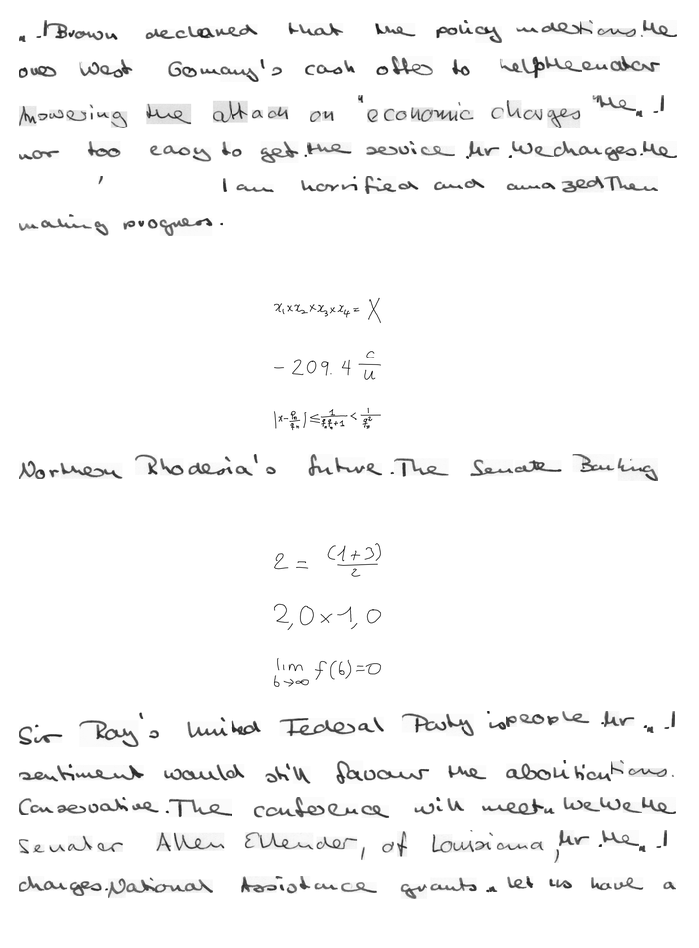 Brown declared that the policy
over West Germany's cash offer to help the enator
Answering the attack on "economic charges "He
nor too easy to get. the service Mr. We charges. He
' I am horrified and amazed Then
making progress.
x₁×x₂×x₃×x₄= X
-209.4 c/u
|x-pₙ/qₙ| ≤ 1/(qₙqₙ+1) < 1/qₙ²
Northern Rhodesia's future. The Senate Banking
2 = (1+3)/2
2,0×1,0
lim b→∞ f(b)=0
Sir Roy's United Federal Party is people Mr.
sentiment would still favour the abolition
Conservative. The conference will meet We We He
Senator Allen Ellender, of Louisiana, Mr. He
charges. National Assistance grants. let us have a